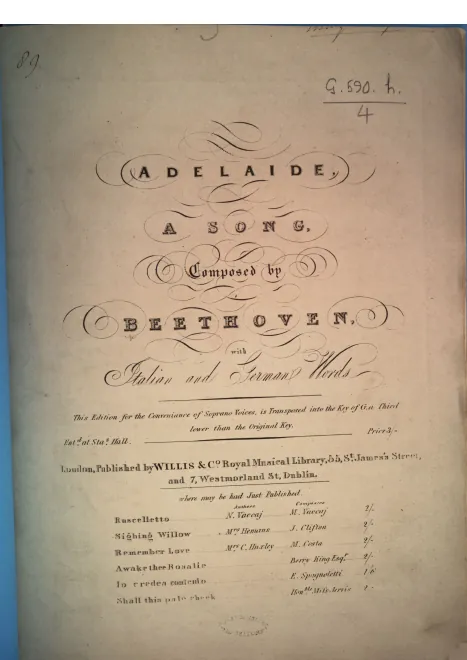 89
G.590.h.
4
ADELAIDE,
A SONG,
Composed by
BEETHOVEN,
with
Italian and German Words
This Edition for the Convenience of Soprano Voices, is Transposed into the Key of G, a Third
lower than the Original Key.
Ent.d at Sta. Hall. Price 3/-
London, Published by WILLIS & Co. Royal Musical Library, 55, St. James's Street,
and 7, Westmorland St, Dublin.
where may be had Just Published.
Authors Composers
Ruscelletto N. Vaccaj M. Vaccaj 2/-
Sighing Willow Mrs Hemans J. Clifton 2/-
Remember Love Mrs C. M. Costa 2/-
Awake thee Rosalie Berry King Esqr. 2/-
Io credea contento E. Spagnoletti
Shall this pale cheek Honble. Jervis